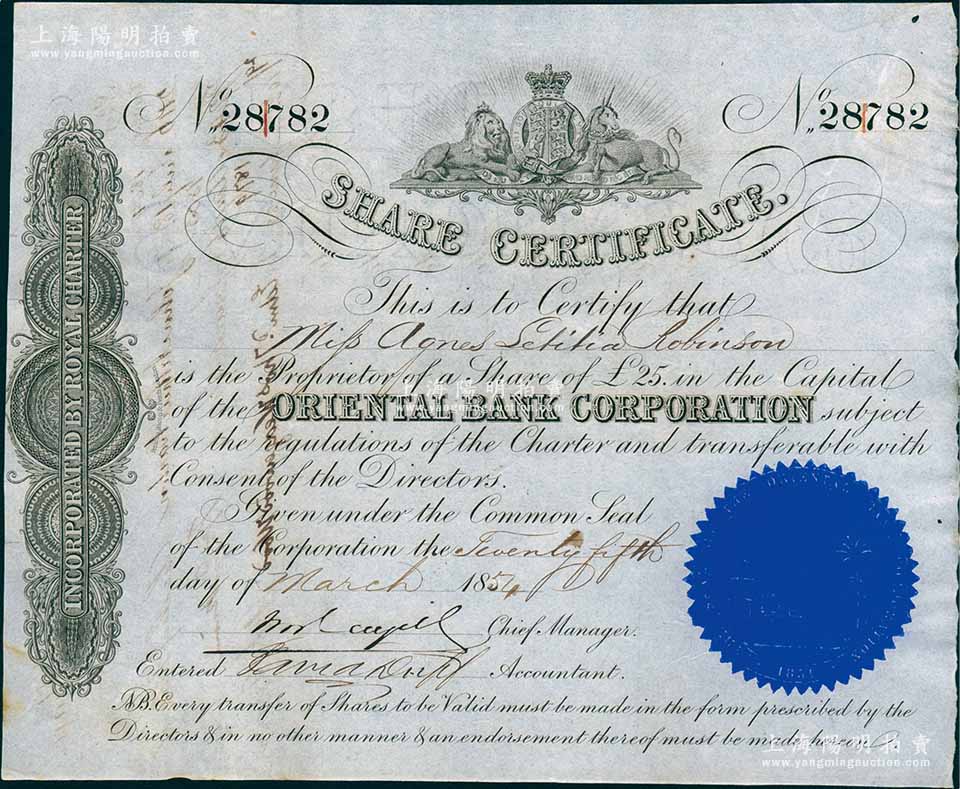 上海陽明拍賣
www.yangmingauction.com
No. 28782
No. 28782
SHARE CERTIFICATE.
INCORPORATED BY ROYAL CHARTER
This is to Certify that
Miss Agnes Letitia Robinson
is the Proprietor of a Share of £25. in the Capital
of the ORIENTAL BANK CORPORATION subject
to the regulations of the Charter and transferable with
Consent of the Directors.
Given under the Common Seal
of the Corporation the Twenty fifth
day of March 1854
Chief Manager.
Entered Accountant.
NB. Every transfer of Shares to be Valid must be made in the form prescribed by the
Directors & in no other manner & an endorsement thereof must be made hereon
1851
上海陽明拍賣
www.yangmingauction.com
上海陽明拍賣
www.yangmingauction.com